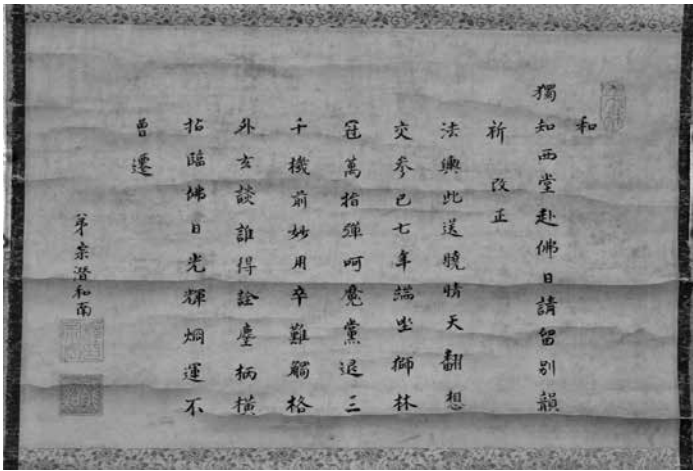 和
獨知西堂赴佛日請留別韻
祈 改正
法輿此送曉晴天翻想
交參已七年端坐獅林
冠萬指彈呵魔黨退三
千機前妙用卒難觸格
外玄談誰得詮麈柄橫
拈臨佛日光輝烱運不
曾遷
弟宗潛和南